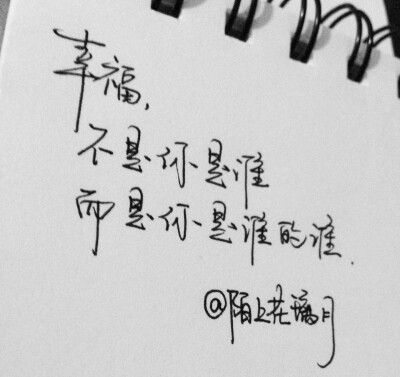 幸福，
不是你是谁
而是你是谁的谁.
@陌上花璃月